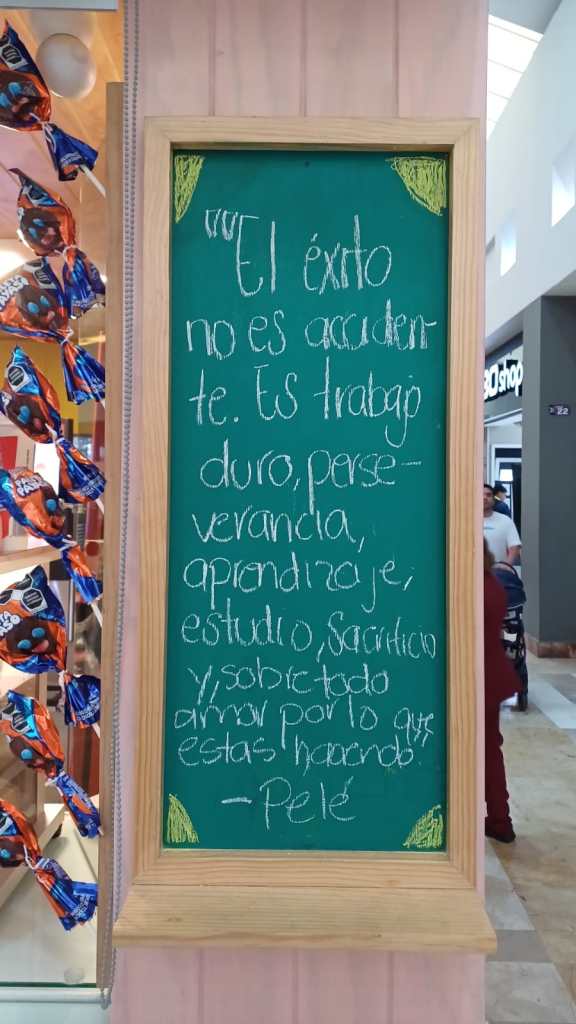 "El éxito
no es acciden-
te. Es trabajo
duro, perse-
verancia,
aprendizaje,
estudio, sacrificio
y, sobre todo
amor por lo que
estas haciendo."
- Pelé
shop
22